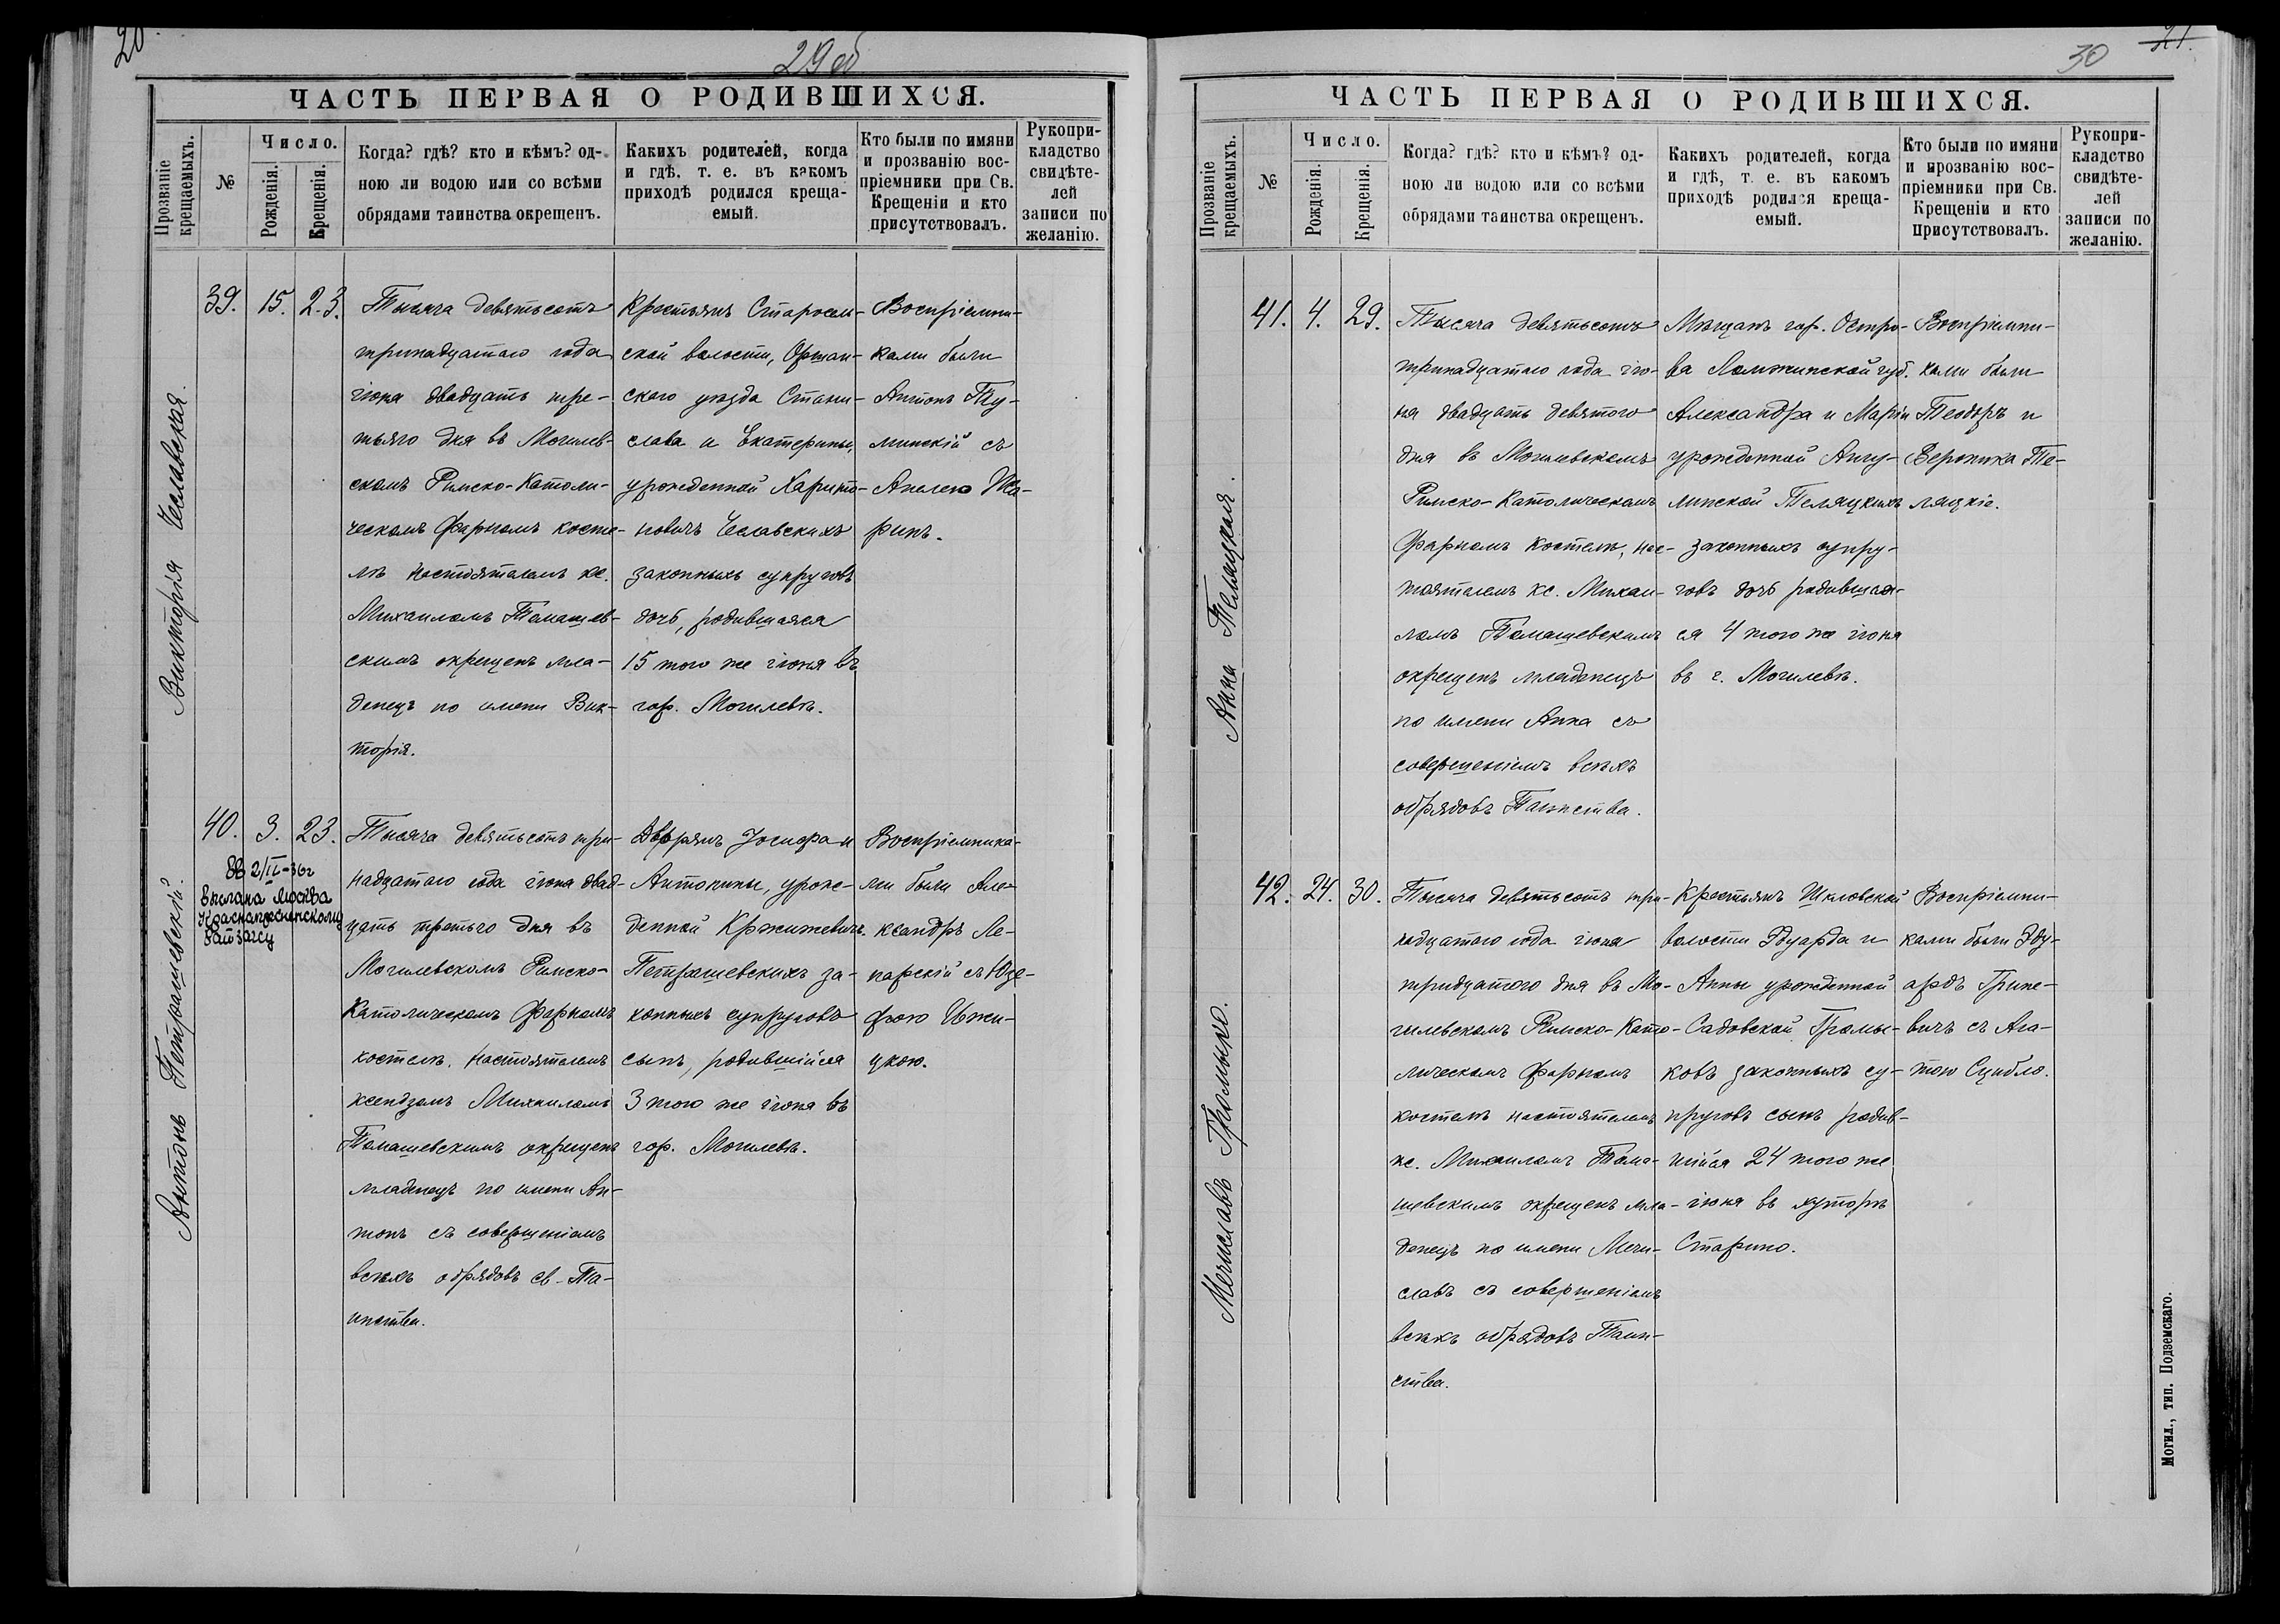 20.
29 об
ЧАСТЬ ПЕРВАЯ О РОДИВШИХСЯ.
Прозваніе крещаемыхъ.
№
Число.
Рожденія.
Крещенія.
Когда? гдѣ? кто и кѣмъ? од-
ною ли водою или со всѣми
обрядами таинства окрещенъ.
Какихъ родителей, когда
и гдѣ, т. е. въ какомъ
приходѣ родился креща-
емый.
Кто были по имяни
и прозванію вос-
пріемники при Св.
Крещеніи и кто
присутствовалъ.
Рукопри-
кладство
свидѣте-
лей
записи по
желанію.
Викторія Чеславская.
39. 15. 23.
Тысяча девятьсотъ
тринадцатаго года
іюня двадцать тре-
тьяго дня въ Могилев-
скомъ Римско-Католи-
ческомъ Фарномъ косте-
лѣ настоятелемъ кс.
Михаиломъ Томашев-
скимъ окрещенъ мла-
денецъ по имени Вик-
торія.
Крестьянъ Старосель-
ской волости, Оршан-
скаго уѣзда Стани-
слава и Екатерины,
урожденной Харито-
новичъ Чеславскихъ
законныхъ супруговъ
дочь, родившаяся
15 того же іюня въ
гор. Могилевѣ.
Воспріемни-
ками были
Антонъ Ту-
минскій съ
Анелею
Антонъ Петрашевскій.
40. 3. 23.
2/II-36г
Выслана Москва
Краснопресненскому
Райзагсу
Тысяча девятьсотъ три-
надцатаго года іюня двад-
цать третьяго дня въ
Могилевскомъ Римско-
Католическомъ Фарномъ
костелѣ, настоятелемъ
ксендзомъ Михаиломъ
Томашевскимъ окрещенъ
младенецъ по имени Ан-
тонъ съ совершеніемъ
всѣхъ обрядовъ св. Та-
инства.
Дворянъ Іосифа и
Антонины, урож-
денной Кржижевичъ
Петрашевскихъ за-
конныхъ супруговъ
сынъ, родившійся
3 того же іюня въ
гор. Могилевѣ.
Воспріемника-
ми были Але-
ксандръ Ле-
парскій съ Юзе-
фою Ижи-
цкою.
30
21.
ЧАСТЬ ПЕРВАЯ О РОДИВШИХСЯ.
Прозваніе крещаемыхъ.
№
Число.
Рожденія.
Крещенія.
Когда? гдѣ? кто и кѣмъ? од-
ною ли водою или со всѣми
обрядами таинства окрещенъ.
Какихъ родителей, когда
и гдѣ, т. е. въ какомъ
приходѣ родился креща-
емый.
Кто были по имяни
и прозванію вос-
пріемники при Св.
Крещеніи и кто
присутствовалъ.
Рукопри-
кладство
свидѣте-
лей
записи по
желанію.
Анна Теляцкая.
41. 4. 29.
Тысяча девятьсотъ
тринадцатаго года ію-
ня двадцать девятого
дня въ Могилевскомъ
Римско-Католическомъ
Фарномъ костелѣ, нас-
тоятелемъ кс. Михаи-
ломъ Томашевскимъ
окрещенъ младенецъ
по имени Анна съ
совершеніемъ всѣхъ
обрядовъ Таинства.
Мѣщанъ гор. Остро-
ва Ломжинской губ.
Александра и Маріи
урожденной Анчу-
линской Теляцкихъ
законныхъ супру-
говъ дочь родившая-
ся 4 того же іюня
въ г. Могилевѣ.
Воспріемни-
ками были
Теодоръ и
Вероника Те-
ляцкіе.
Мечиславъ Громыко.
42. 24. 30.
Тысяча девятьсотъ три-
надцатаго года іюня
тридцатого дня въ Мо-
гилевскомъ Римско-Като-
лическомъ Фарномъ
костелѣ настоятелемъ
кс. Михаиломъ Тома-
шевскимъ окрещенъ мла-
денецъ по имени Мечи-
славъ съ совершеніемъ
всѣхъ обрядовъ Таин-
ства.
Крестьянъ Шкловской
волости Эдуарда и
Анны урожденной
Садовской Громы-
ковъ законныхъ су-
пруговъ сынъ родив-
шійся 24 того же
іюня въ хуторѣ
Старино.
Воспріемни-
ками были Эду-
ардъ Грине-
вичъ съ Ага-
тою Сцибло.
Могил., тип. Подземскаго.